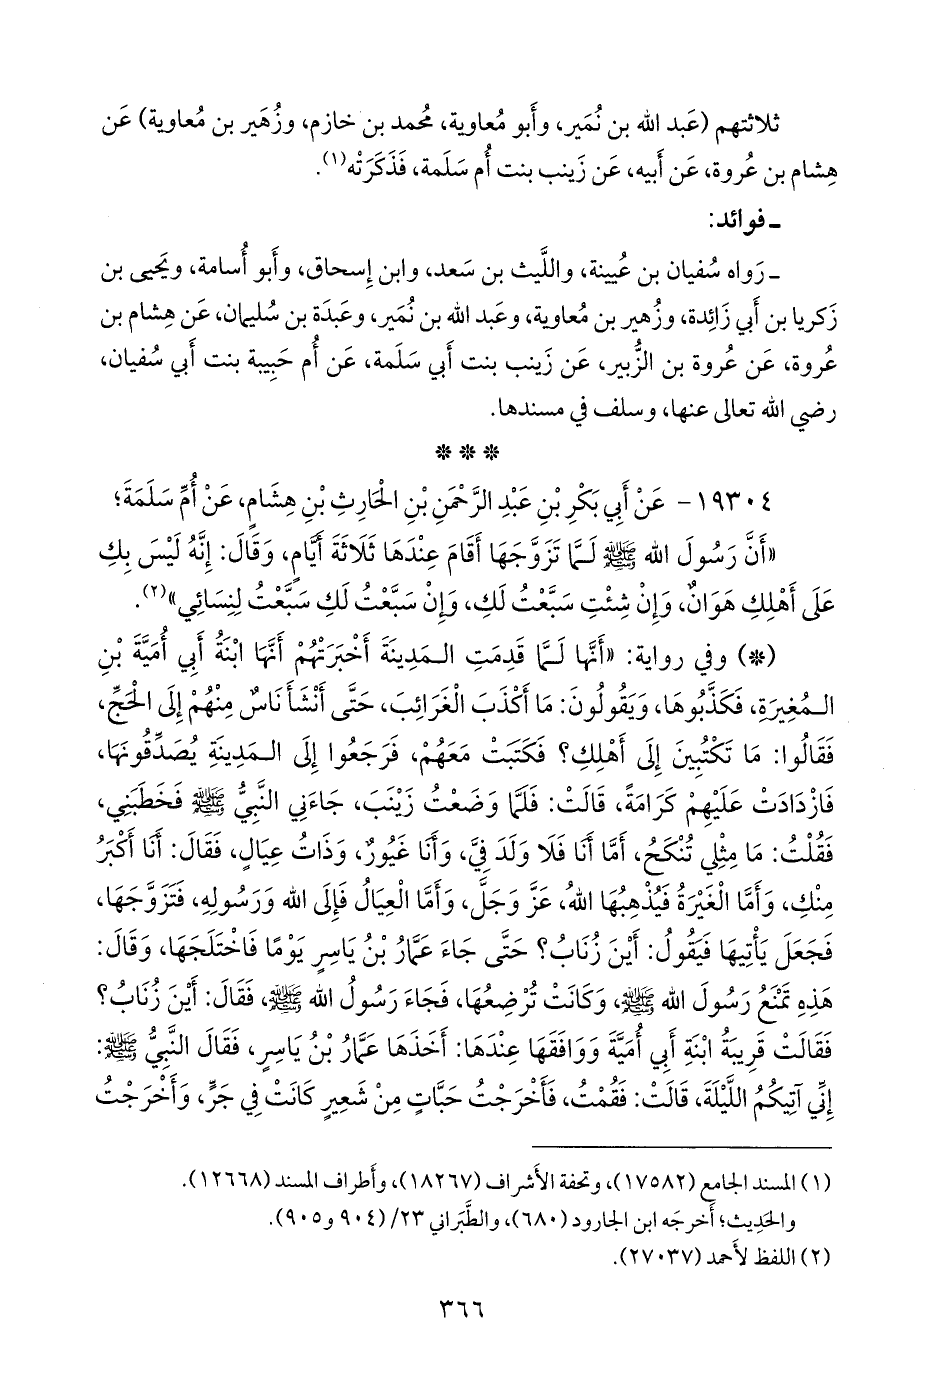 ثلاثتهم (عَبد الله بن نُمَير، وأَبو مُعاوية، محُمد بن خازم، وزُهَير بن مُعاوية) عَن
هِشام بن عُروة، عَن أَبيه، عَن زَينب بنت أُم سَلَمة، فَذَكَرَتْه(١).
ـ فوائد:
ـ رَواه سُفيان بن عُيينة، واللَّيث بن سَعد، وابن إِسحاق، وأَبو أُسامة، ويَحيى بن
زكريا بن أَبي زَائِدة، وزُهير بن مُعاوية، وعَبد الله بن نُمَير، وعَبدَة بن سُليمان، عَن هِشام بن
عُروة، عَن عُروة بن الزُّبير، عَن زَينب بنت أَبي سَلَمة، عَن أُم حَبِيبة بنت أَبي سُفيان،
رضي الله تعالى عنها، وسلف في مسندها.
* * *
١٩٣٠٤ - عَنْ أَبِي بَكْرِ بْنِ عَبْدِ الرَّحْمَنِ بْنِ الْحَارِثِ بْنِ هِشَامٍ، عَنْ أُمِّ سَلَمَةَ؛
«أَنَّ رَسُولَ الله ﷺ لَـمَّا تَزَوَّجَهَا أَقَامَ عِنْدَهَا ثَلَاثَةَ أَيَّامٍ، وَقَالَ: إِنَّهُ لَيْسَ بِكِ
عَلَى أَهْلِكِ هَوَانٌ، وَإِنْ شِئْتِ سَبَّعْتُ لَكِ، وَإِنْ سَبَّعْتُ لَكِ سَبَّعْتُ لِنِسَائِي»(٢).
(*) وفي رواية: «أَنَّهَا لَـمَّا قَدِمَتِ الـمَدِينَةَ أَخْبَرَتْهُمْ أَنَّهَا ابْنَةُ أَبِي أُمَيَّةَ بْنِ
الـمُغِيرَةِ، فَكَذَّبُوهَا، وَيَقُولُونَ: مَا أَكْذَبَ الْغَرَائِبَ، حَتَّى أَنْشَأَ نَاسٌ مِنْهُمْ إِلَى الْحَجِّ،
فَقَالُوا: مَا تَكْتُبِينَ إِلَى أَهْلِكِ؟ فَكَتَبَتْ مَعَهُمْ، فَرَجَعُوا إِلَى الـمَدِينَةِ يُصَدِّقُونَهَا،
فَازْدَادَتْ عَلَيْهِمْ كَرَامَةً، قَالَتْ: فَلَمَّا وَضَعْتُ زَيْنَبَ، جَاءَنِي النَّبِيُّ ﷺ فَخَطَبَنِي،
فَقُلْتُ: مَا مِثْلِي تُنْكَحُ، أَمَّا أَنَا فَلَا وَلَدَ فِيَّ، وَأَنَا غَيُورٌ، وَذَاتُ عِيَالٍ، فَقَالَ: أَنَا أَكْبَرُ
مِنْكِ، وَأَمَّا الْغَيْرَةُ فَيُذْهِبُهَا اللهُ، عَزَّ وَجَلَّ، وَأَمَّا الْعِيَالُ فَإِلَى الله وَرَسُولِهِ، فَتَزَوَّجَهَا،
فَجَعَلَ يَأْتِيهَا فَيَقُولُ: أَيْنَ زُنَابُ؟ حَتَّى جَاءَ عَمَّارُ بْنُ يَاسِرٍ يَوْمًا فَاخْتَلَجَهَا، وَقَالَ:
هَذِهِ تَمْنَعُ رَسُولَ الله ﷺ، وَكَانَتْ تُرْضِعُهَا، فَجَاءَ رَسُولُ الله ﷺ، فَقَالَ: أَيْنَ زُنَابُ؟
فَقَالَتْ قَرِيبَةُ ابْنَةِ أَبِي أُمَيَّةَ وَوَافَقَهَا عِنْدَهَا: أَخَذَهَا عَمَّارُ بْنُ يَاسِرٍ، فَقَالَ النَّبِيُّ ﷺ:
إِنِّي آتِيكُمُ اللَّيْلَةَ، قَالَتْ: فَقُمْتُ، فَأَخْرَجْتُ حَبَّاتٍ مِنْ شَعِيرٍ كَانَتْ فِي جَرٍّ، وَأَخْرَجْتُ
(١) المسند الجامع (١٧٥٨٢)، وتحفة الأشراف (١٨٢٦٧)، وأطراف المسند (١٢٦٦٨).
والحَدِيث؛ أَخرجَه ابن الجارود (٦٨٠)، والطَّبَراني ٢٣/ (٩٠٤ و٩٠٥).
(٢) اللفظ لأَحمد (٢٧٠٣٧).
٣٦٦